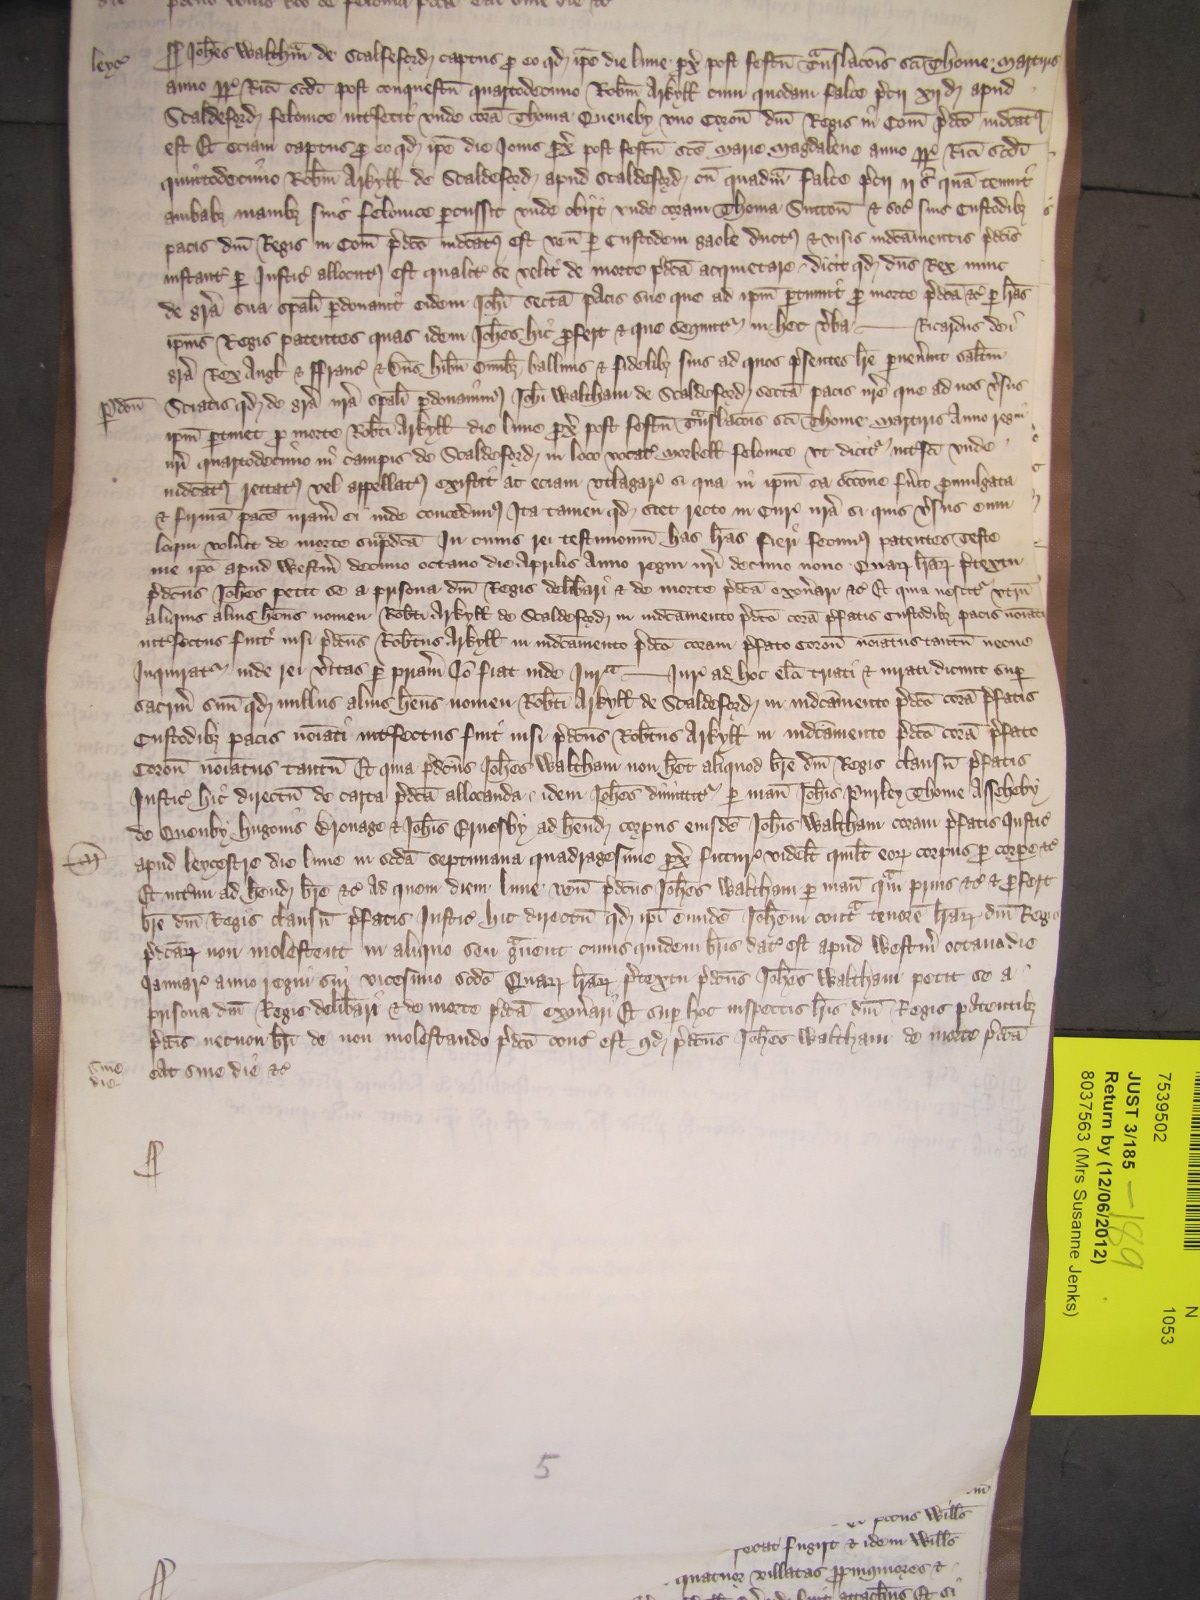 leyc̃
Joh̃es Walth̃m de Scalfeford captus p eo qd ip̃e die lune px̃ post festũ Translac̃ois sc̃i Thome Martiris
anno rr̃ Ric̃i sc̃di post conquestũ quartodecimo Rob̃tm Arkyll cum quodam falce p̃cii xij d apud
Scaldeford felonice int̃fecit vnde corã Thoma Queneby vno Coron̄ dm̃ Regis in Com̃ p̃dc̃o indc̃at
est Et eciam captus p eo qd ip̃e die Jouis px̃ post festũ sc̃e Marie Magdalene anno rr̃ Ric̃i sc̃di
quintodecimo Rob̃tm Arkyll de Scaldeford apud Scaldeford cũ quadm̃ falce p̃cii ij s̃ quã tenuit
ambab manib suis felonice p̃cussit vnde obijt vnde coram Thoma Sutton̄ & soc̃ suis Custodib
pacis dm̃ Regis in Com̃ p̃dc̃o indc̃atus est ven̄ p Custodem gaole ductus & visis indc̃amentis p̃dc̃is
instant̃ p Justic̃ allocutus est qualit̃ se velit de morte p̃dc̃a acquietare dicit qd dñs Rex nunc
de gr̃a sua sp̃ali p̃donauit eidem Joh̃i sectã pacis sue que ad ip̃m p̃tinuit p morte p̃dc̃a &c̃ p lr̃as
ipius Regis patentes quas idem Joh̃es hic p̃fert & que sequnt̃ in hec ṽba Ricardus dei
gr̃a Rex Angl̃ & ffranc̃ & Dñs hib̃n Omib balliuis & fidelib suis ad quos p̃sentes lr̃e p̃uen̄int salt̃m
P̃don̄
Sciatis qd de gr̃a nr̃a sp̃ali p̃donauimus Joh̃i Waltham de Scaldeford sectã pacis nr̃e que ad nos ṽsus
ip̃m p̃tinet p morte Rob̃ti Arkyll die lune px̃ post festũ Translac̃ois sc̃i Thome Martiris Anno regni
nr̃i quartodecimo in campis de Scaldeford in loco vocat̃ Morkell felonice vt dicit̃ int̃fc̃i vnde
indc̃atus rettatus vel appellatus existit ac eciam vtlagar̃ si qua in ip̃m ea occ̃one fũit p̃mulgata
& firmã pacẽ nr̃am ei inde concedimus Ita tamen qd stet recto in Cur̃ nr̃a si quis ṽsus eum
loqui volũit de morte sup̃dc̃a In cuius rei testimoniũ has lr̃as fieri fecimus patentes Teste
me ip̃o apud Westm̃ decimo octauo die Aprilis Anno regni nr̃i decimo nono Quar lr̃ar p̃textu
p̃dc̃us Joh̃es petit se a prisona dm̃ Regis delib̃ari & de morte p̃dc̃a exon̄ari &c̃ Et quia nescit̃ vtrũ
aliquis alius hẽns nomen Rob̃ti Arkyll de Scaldeford in indc̃amento p̃dc̃o corã p̃fatis Custodib pacis no̅iati
int̃fectus fuit̃ nisi p̃dc̃us Rob̃tus Arkyll in indc̃amento p̃dc̃o coram p̃fato Coron̄ no̅iatus tantũ necne
Inquirat̃ inde rei ṽitas p pr̃iam Io̅ fiat inde Jur̃ta Jur̃ ad hoc elc̃i triati & iurati dicunt sup
sacr̃m suũ qd nullus alius hẽns nomen Rob̃ti Arkyll de Scaldeford in indc̃amento p̃dc̃o corã p̃fatis
Custodib pacis no̅iati int̃fectus fuit nisi p̃dc̃us Rob̃tus Arkyll in indc̃amento p̃dc̃o corã p̃fato
Coron̄ no̅iatus tantũ Et quia p̃dc̃us Joh̃es Waltham non h̃et aliquod br̃e dm̃ Regis clausũ p̃fatis
Justic̃ hic directũ de carta p̃dc̃a allocanda idem Joh̃es dimittit̃ p man̄ Joh̃is Purley Thome Assheby
de Quenby Hugonis Bronage & Joh̃is Cruesby ad h̃end corpus eiusdẽ Joh̃is Waltham coram p̃fatis Justic̃
apud leycestre die lune in sc̃da septimana quadragesime px̃ futur̃ videl̃t quil̃t eor corpus p corpe &c̃
Et int̃im ad h̃end br̃e &c̃ Ad quem diem lune ven̄ p̃dc̃us Joh̃es Waltham p man̄ qm̃ prius &c̃ & p̃fert
br̃e dm̃ Regis clausũ p̃fatis Justic̃ hic directũ qd ip̃i eundẽ Joh̃em cont̃ tenorẽ lr̃ar dm̃ Regis
p̃dc̃ar non molestent in aliquo seu g̃uent cuius quidem br̃is dat̃ est apud Westm̃ octaua die
Januar̃ anno regni sui vicesimo sc̃do Quar lr̃ar p̃textu p̃dc̃us Joh̃es Waltham petit se a
prisona dm̃ Regis delib̃ari & de morte p̃dc̃a exon̄ari Et sup hoc inspectis lr̃is dm̃ Regis patentib
p̃dc̃is necnon br̃i de non molestando p̃dc̃o cons̃ est qd p̃dc̃us Joh̃es Waltham de morte p̃dc̃a
sine
die
eat sine die &c̃
5
ei p̃dc̃us Will̃s
fugijt & idem Will̃s
quatuor villatas ppinquiores &
attach̃us Et si
7539502
JUST 3/185 - 189
Return by (12/06/2012)
8037563 (Mrs Susanne Jenks)
N
1053